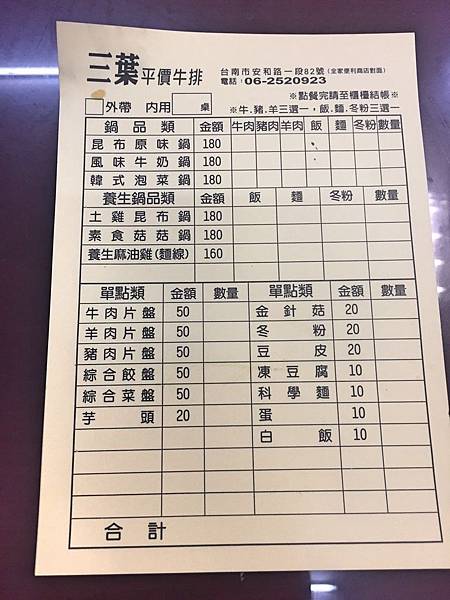 三葉平價牛排 台南市安和路一段82號(全家便利商店對面)
電話:06-2520923
※點餐完請至櫃檯結帳※
□外帶 內用 桌 ※牛.豬.羊三選一,飯.麵.冬粉三選一
鍋品類 金額 牛肉 豬肉 羊肉 飯 麵 冬粉 數量
昆布原味鍋 180
風味牛奶鍋 180
韓式泡菜鍋 180
養生鍋品類 金額 飯 麵 冬粉 數量
土雞昆布鍋 180
素食菇菇鍋 180
養生麻油雞(麵線) 160
單點類 金額 數量 單點類 金額 數量
牛肉片盤 50 金針菇 20
羊肉片盤 50 冬粉 20
豬肉片盤 50 豆皮 20
綜合餃盤 50 凍豆腐 10
綜合菜盤 50 科學麵 10
芋頭 20 蛋 10
白飯 10
合計